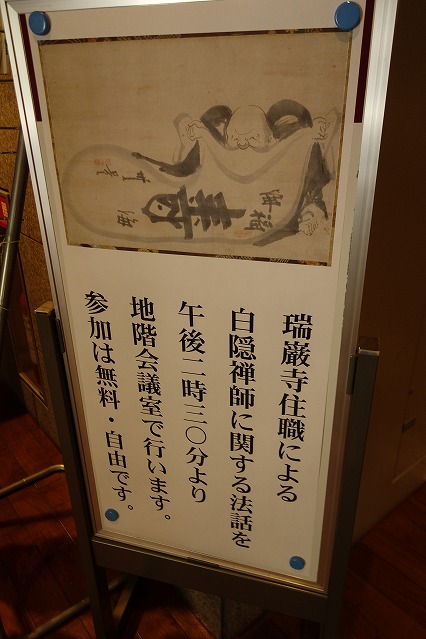 瑞巌寺住職による
白隠禅師に関する法話を
午後一時三〇分より
地階会議室で行います。
参加は無料・自由です。
壽
福
海